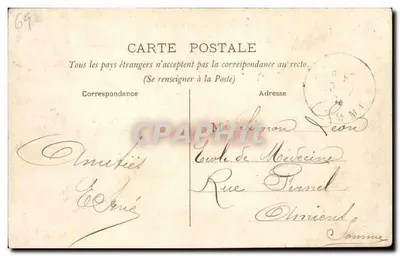 69
CARTE POSTALE
Tous les pays étrangers n'acceptent pas la correspondance au recto.
(Se renseigner à la Poste)
Correspondance
Adresse
Léon
Amitiés
Ecole de Médecine
Rue
Amiens
Somme
CPAPHIL